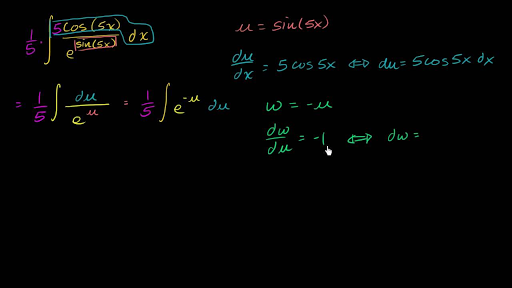 1/5 · ∫ 5cos(5x) / e^sin(5x) dx
u = sin(5x)
du/dx = 5 cos 5x ⟺ du = 5 cos 5x dx
= 1/5 ∫ du / e^u = 1/5 ∫ e^-u du
w = -u
dw/du = -1 ⟺ dw =